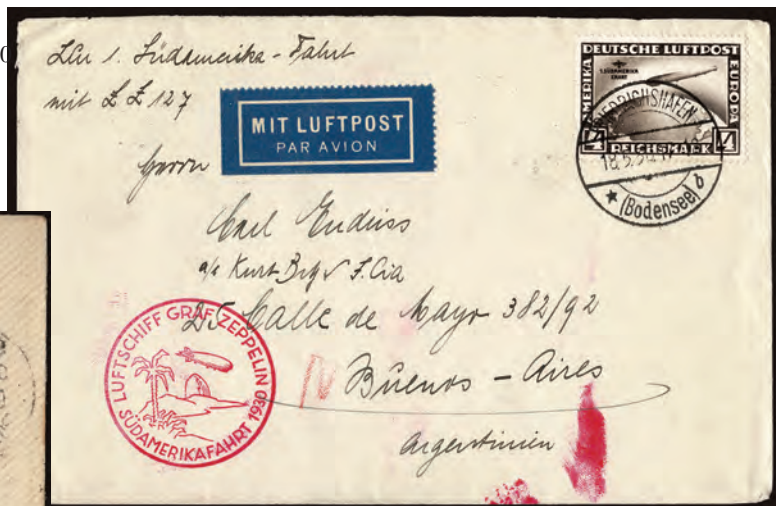 1. Südamerika - Fahrt
mit LZ 127
MIT LUFTPOST
PAR AVION
DEUTSCHE LUFTPOST
AMERIKA
EUROPA
1. SÜDAMERIKA
FAHRT
4 REICHSMARK 4
FRIEDRICHSHAFEN
18.5.30
★ (Bodensee) b
Herrn
Carl Endriss
Kurt & Cia
25 Calle de Mayo 382/92
Buenos - Aires
Argentinien
LUFTSCHIFF GRAF ZEPPELIN
SÜDAMERIKAFAHRT 1930